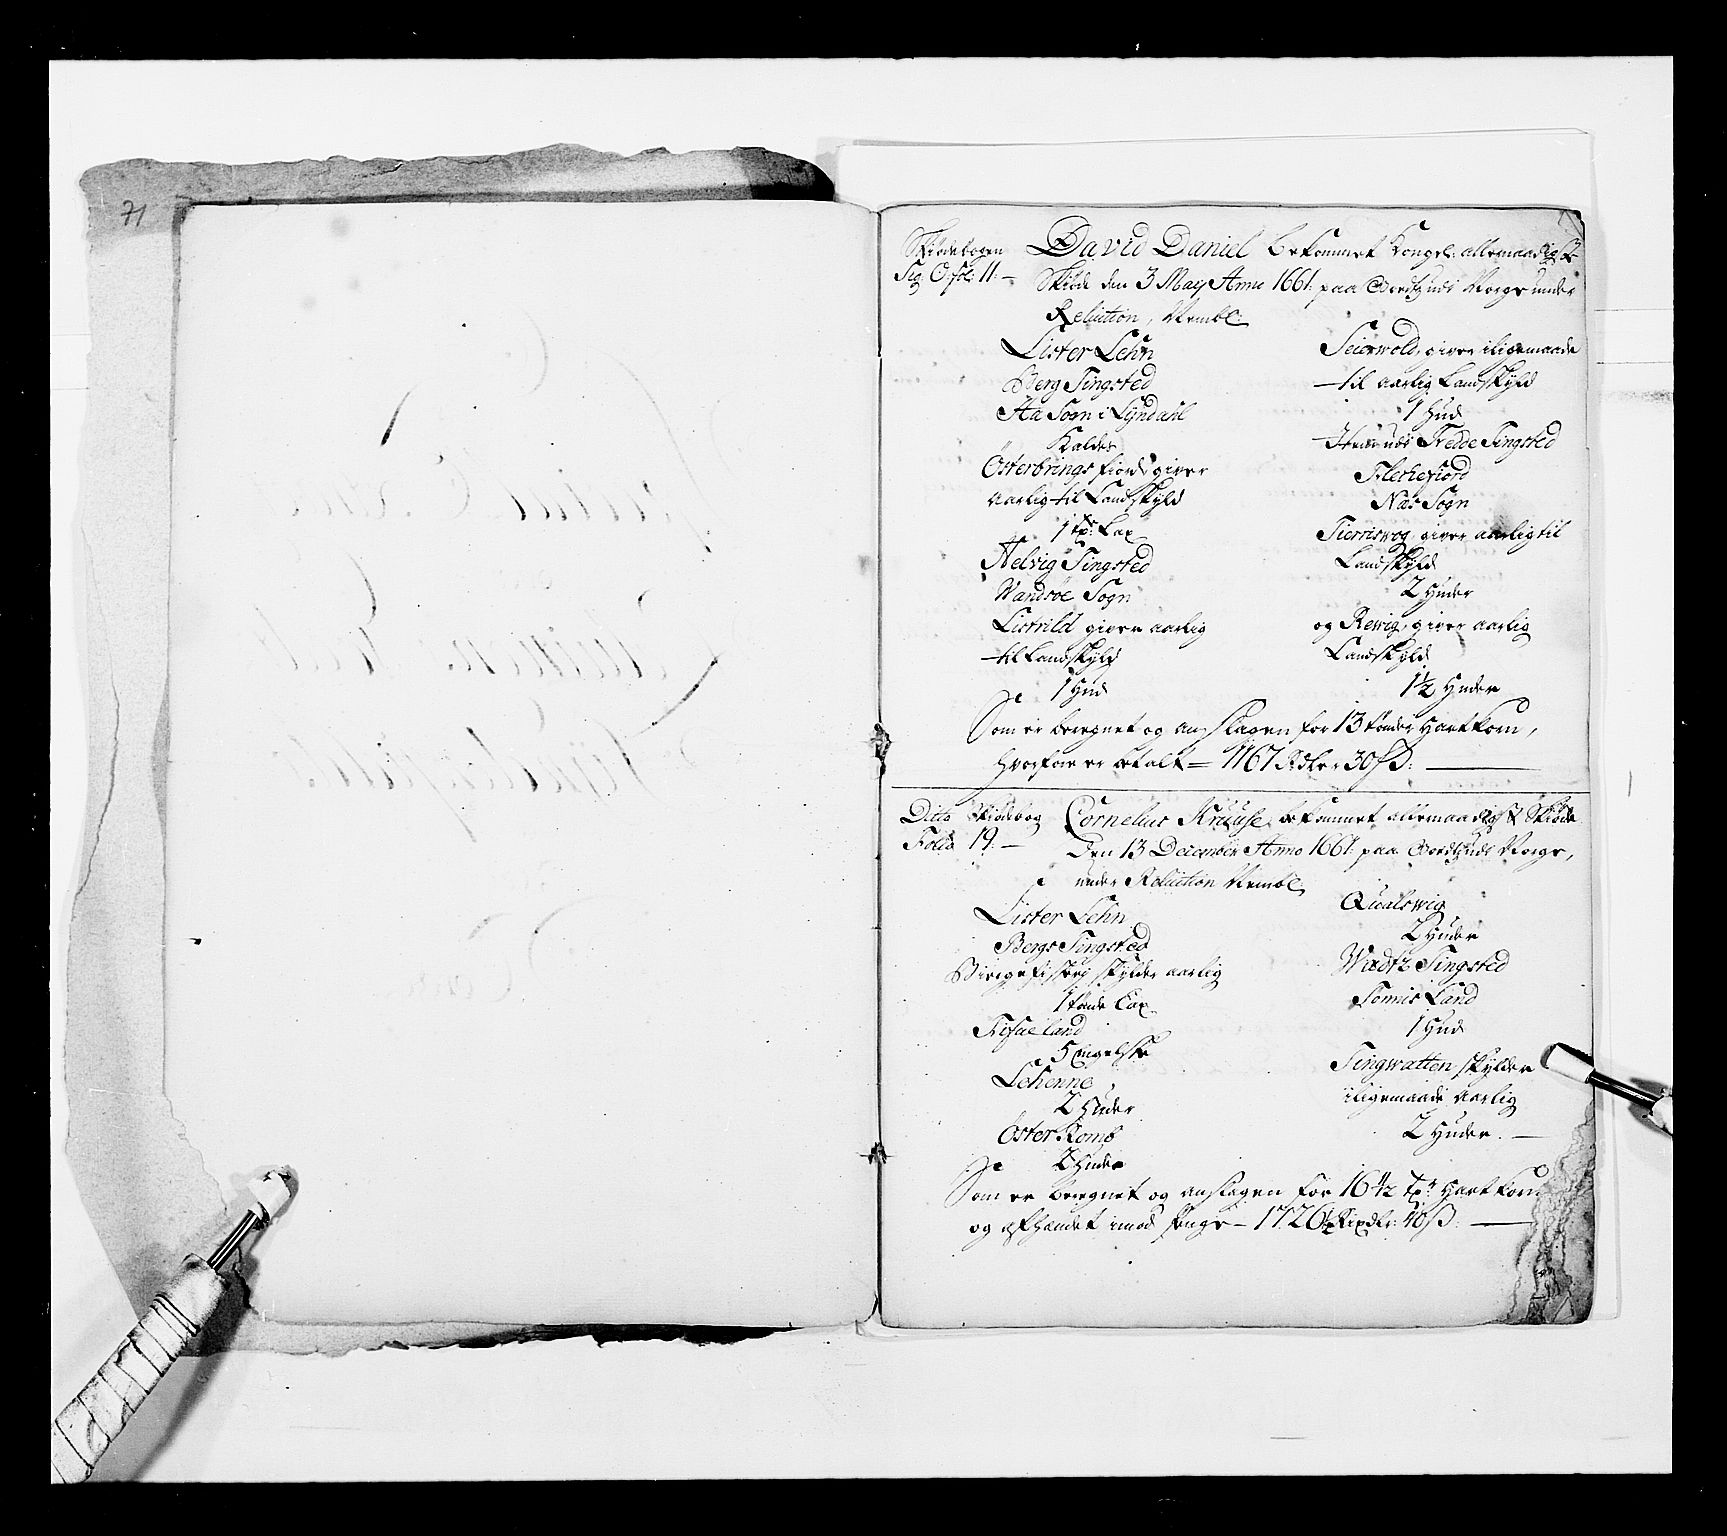 71
Skiødebogen
Sig: O: fol: 11: —
David Daniel bekommet Kongel: allernaadigst
Skiøde den 3 May Anno 1661: paa Gordtzuds Norge under
Reluition, Nembl:
Lister Lehn
Berg Tingsted
Aa Sogn i Lyndaal
Kaldes
Österbrings fiord giver
aarlig til Landskyld
1 tr: Lax
Helvig Tingsted
Wandsöe Sogn
Listrild giver aarlig
til Landskyld
1 Hud
Seierwold, giver iligemaade
til aarlig Landskyld
1 Hud
Fredde Tingsted
Flechefiord
Næs Sogn
Tierriswog, giver aarlig til
Landskyld
2 Huder
og Rewig, giver aarlig
Landskyld
1½ Huder
Som er beregnet og anslagen for 13 tönder Hartkorn,
hvorfore er betalt = 1167 Rdler 30 ß: —
Ditto Skiödebog
Folio 19: —
Cornelius Kruuse bekommet allernaadigst Skiöde
den 13 December Anno 1661: paa Gordtzuds Norge,
under Reluition Nembl:
Lister Lehn
Bergs Tingsted
Birgefisherj skylder aarlig
1 tönde Lax
Fifaeland
5 Engelske
Lehenne
2 Huder
Öster Komb
2 Huder
Qualswig
2 Huder
Wadtz Tingsted
Tomis Land
1 Hud
Tingwatten skylder
iligemaade aarlig
2 Huder. —
Som er beregnet og anslagen for 16½ Tr: Hartkorn
og afhændet imod Penge — 1726½ Rixdlr: 40 ß: —